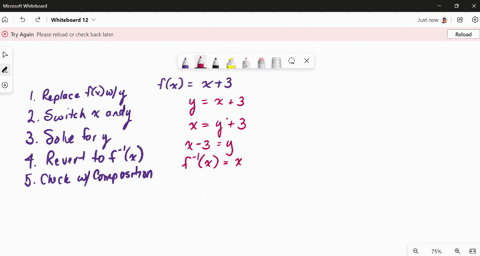 Microsoft Whiteboard
Whiteboard 12
Just now
Try Again Please reload or check back later.
Reload
1. Replace f(x) w/ y
2. Switch x and y
3. Solve for y
4. Revert to f⁻¹(x)
5. Check w/ Composition
f(x) = x + 3
y = x + 3
x = y + 3
x - 3 = y
f⁻¹(x) = x
75%